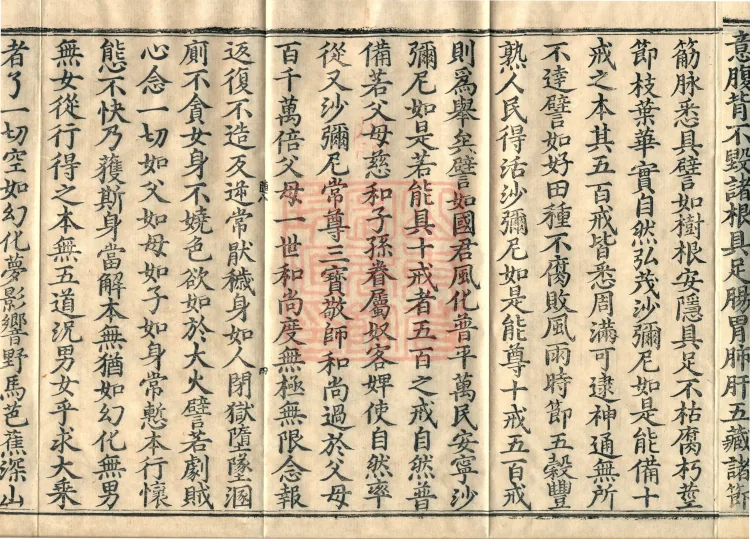 意腹背不毀諸根具足腸胃肺肝五藏諸節
筋脉悉具譬如樹根安隱具足不枯腐朽莖
節枝葉華實自然弘茂沙彌尼如是能備十
戒之本其五百戒皆悉周滿可逮神通無所
不達譬如好田種不腐敗風雨時節五穀豐
熟人民得活沙彌尼如是能尊十戒五百戒
則爲舉矣譬如國君風化普平萬民安寧沙
彌尼如是若能具十戒者五百之戒自然普
備若父母慈和子孫眷屬奴客婢使自然率
從又沙彌尼常尊三寶敬師和尚過於父母
百千萬倍父母一世和尚度無極無限念報
返復不造反逆常猒穢身如人閉獄墮墜溷
廁不貪女身不嬈色欲如於大火譬若劇賊
心念一切如父如母如子如身常慙本行懷
態不快乃獲斯身當解本無猶如幻化無男
無女從行得之本無五道況男女乎求大乘
者了一切空如幻化夢影響野馬芭蕉深山